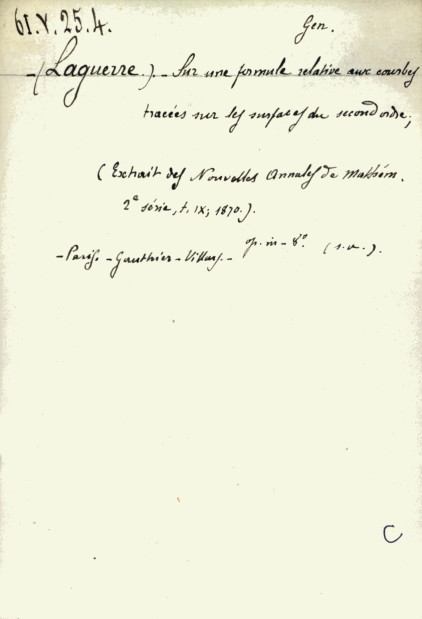 61.V.25.4.
Gen.
-(Laguerre.).- Sur une formule relative aux courbes
tracées sur les surfaces du second ordre;
(Extrait des Nouvelles Annales de Mathém.
2e série, t. IX; 1870.).
-Paris.-Gauthier-Villars.- op. in-8°. (s.a.).
C